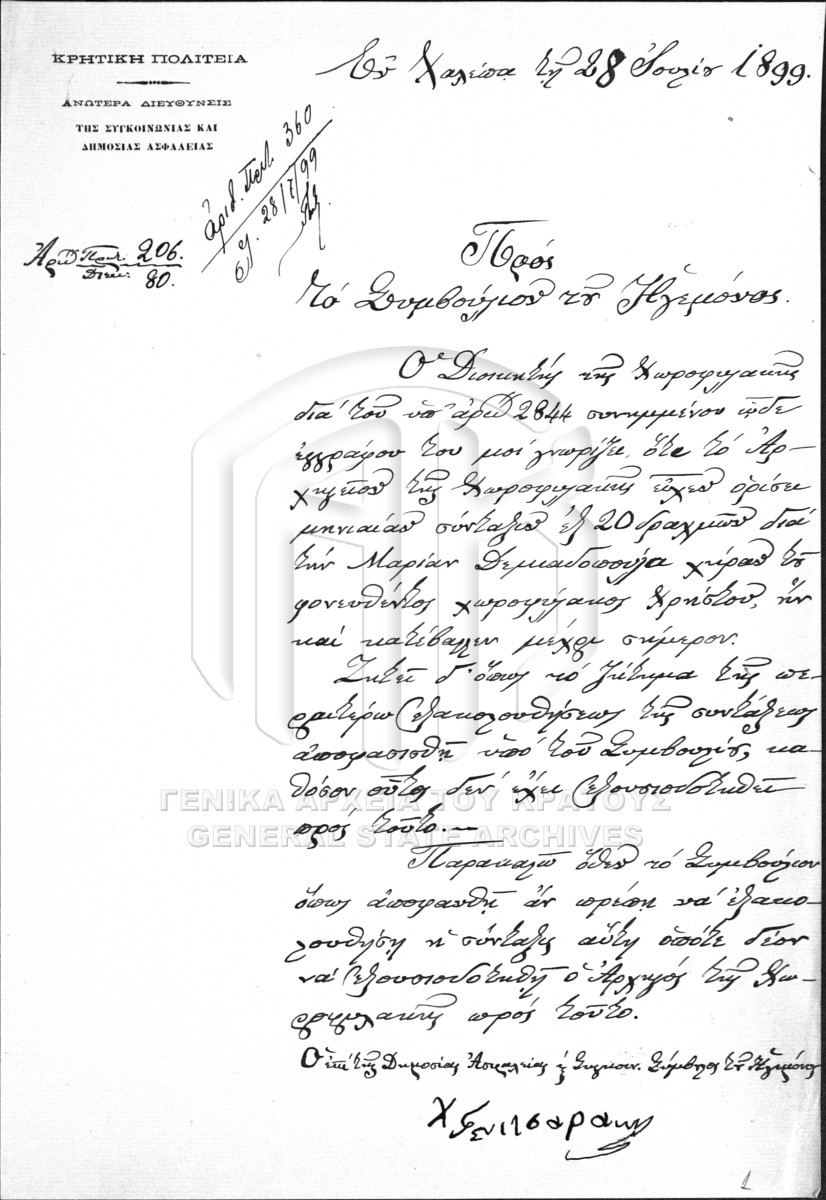 ΚΡΗΤΙΚΗ ΠΟΛΙΤΕΙΑ
ΑΝΩΤΕΡΑ ΔΙΕΥΘΥΝΣΙΣ
ΤΗΣ ΣΥΓΚΟΙΝΩΝΙΑΣ ΚΑΙ
ΔΗΜΟΣΙΑΣ ΑΣΦΑΛΕΙΑΣ
Ἐν Χαλέπᾳ τῇ 28 Ἰουλίου 1899.
ἀριθ. Πρωτ. 360
28/7/99
Ἀριθ. Πρωτ. 206.
Διεκ. 80.
Πρός
τό Συμβούλιον τοῦ Ἡγεμόνος.
Ὁ Διοικητής τῆς Χωροφυλακῆς
διά τοῦ ὑπ' ἀριθ. 2844 συνημμένου ὧδε
ἐγγράφου του μοί γνωρίζει, ὅτι τό Ἀρ-
χηγεῖον τῆς Χωροφυλακῆς εἶχεν ὁρίσει
μηνιαίαν σύνταξιν ἐξ 20 δραχμῶν διά
τήν Μαρίαν χήραν τοῦ
φονευθέντος χωροφύλακος Χρήστου, ἥν
καί κατέβαλλεν μέχρι σήμερον.
Ζητεῖ δ' ὅπως τό ζήτημα τῆς πε-
ραιτέρω ἐξακολουθήσεως τῆς συντάξεως
ἀποφασισθῇ ὑπό τοῦ Συμβουλίου, κα-
θόσον οὗτος δέν ἔχει ἐξουσιοδοτηθεῖ
πρός τοῦτο.
Παρακαλῶ ὅθεν τό Συμβούλιον
ὅπως ἀποφανθῇ ἄν πρέπῃ νά ἐξακο-
λουθήσῃ ἡ σύνταξις αὕτη ὁπότε δέον
νά ἐξουσιοδοτηθῇ ὁ Ἀρχηγός τῆς Χω-
ροφυλακῆς πρός τοῦτο.
Ὁ ἐπί τῆς Δημοσίας Ἀσφαλείας & Συγκοιν. Σύμβουλος τοῦ Ἡγεμόνος
Χ Γενιτσαράκης
1
ΓΕΝΙΚΑ ΑΡΧΕΙΑ ΤΟΥ ΚΡΑΤΟΥΣ
GENERAL STATE ARCHIVES